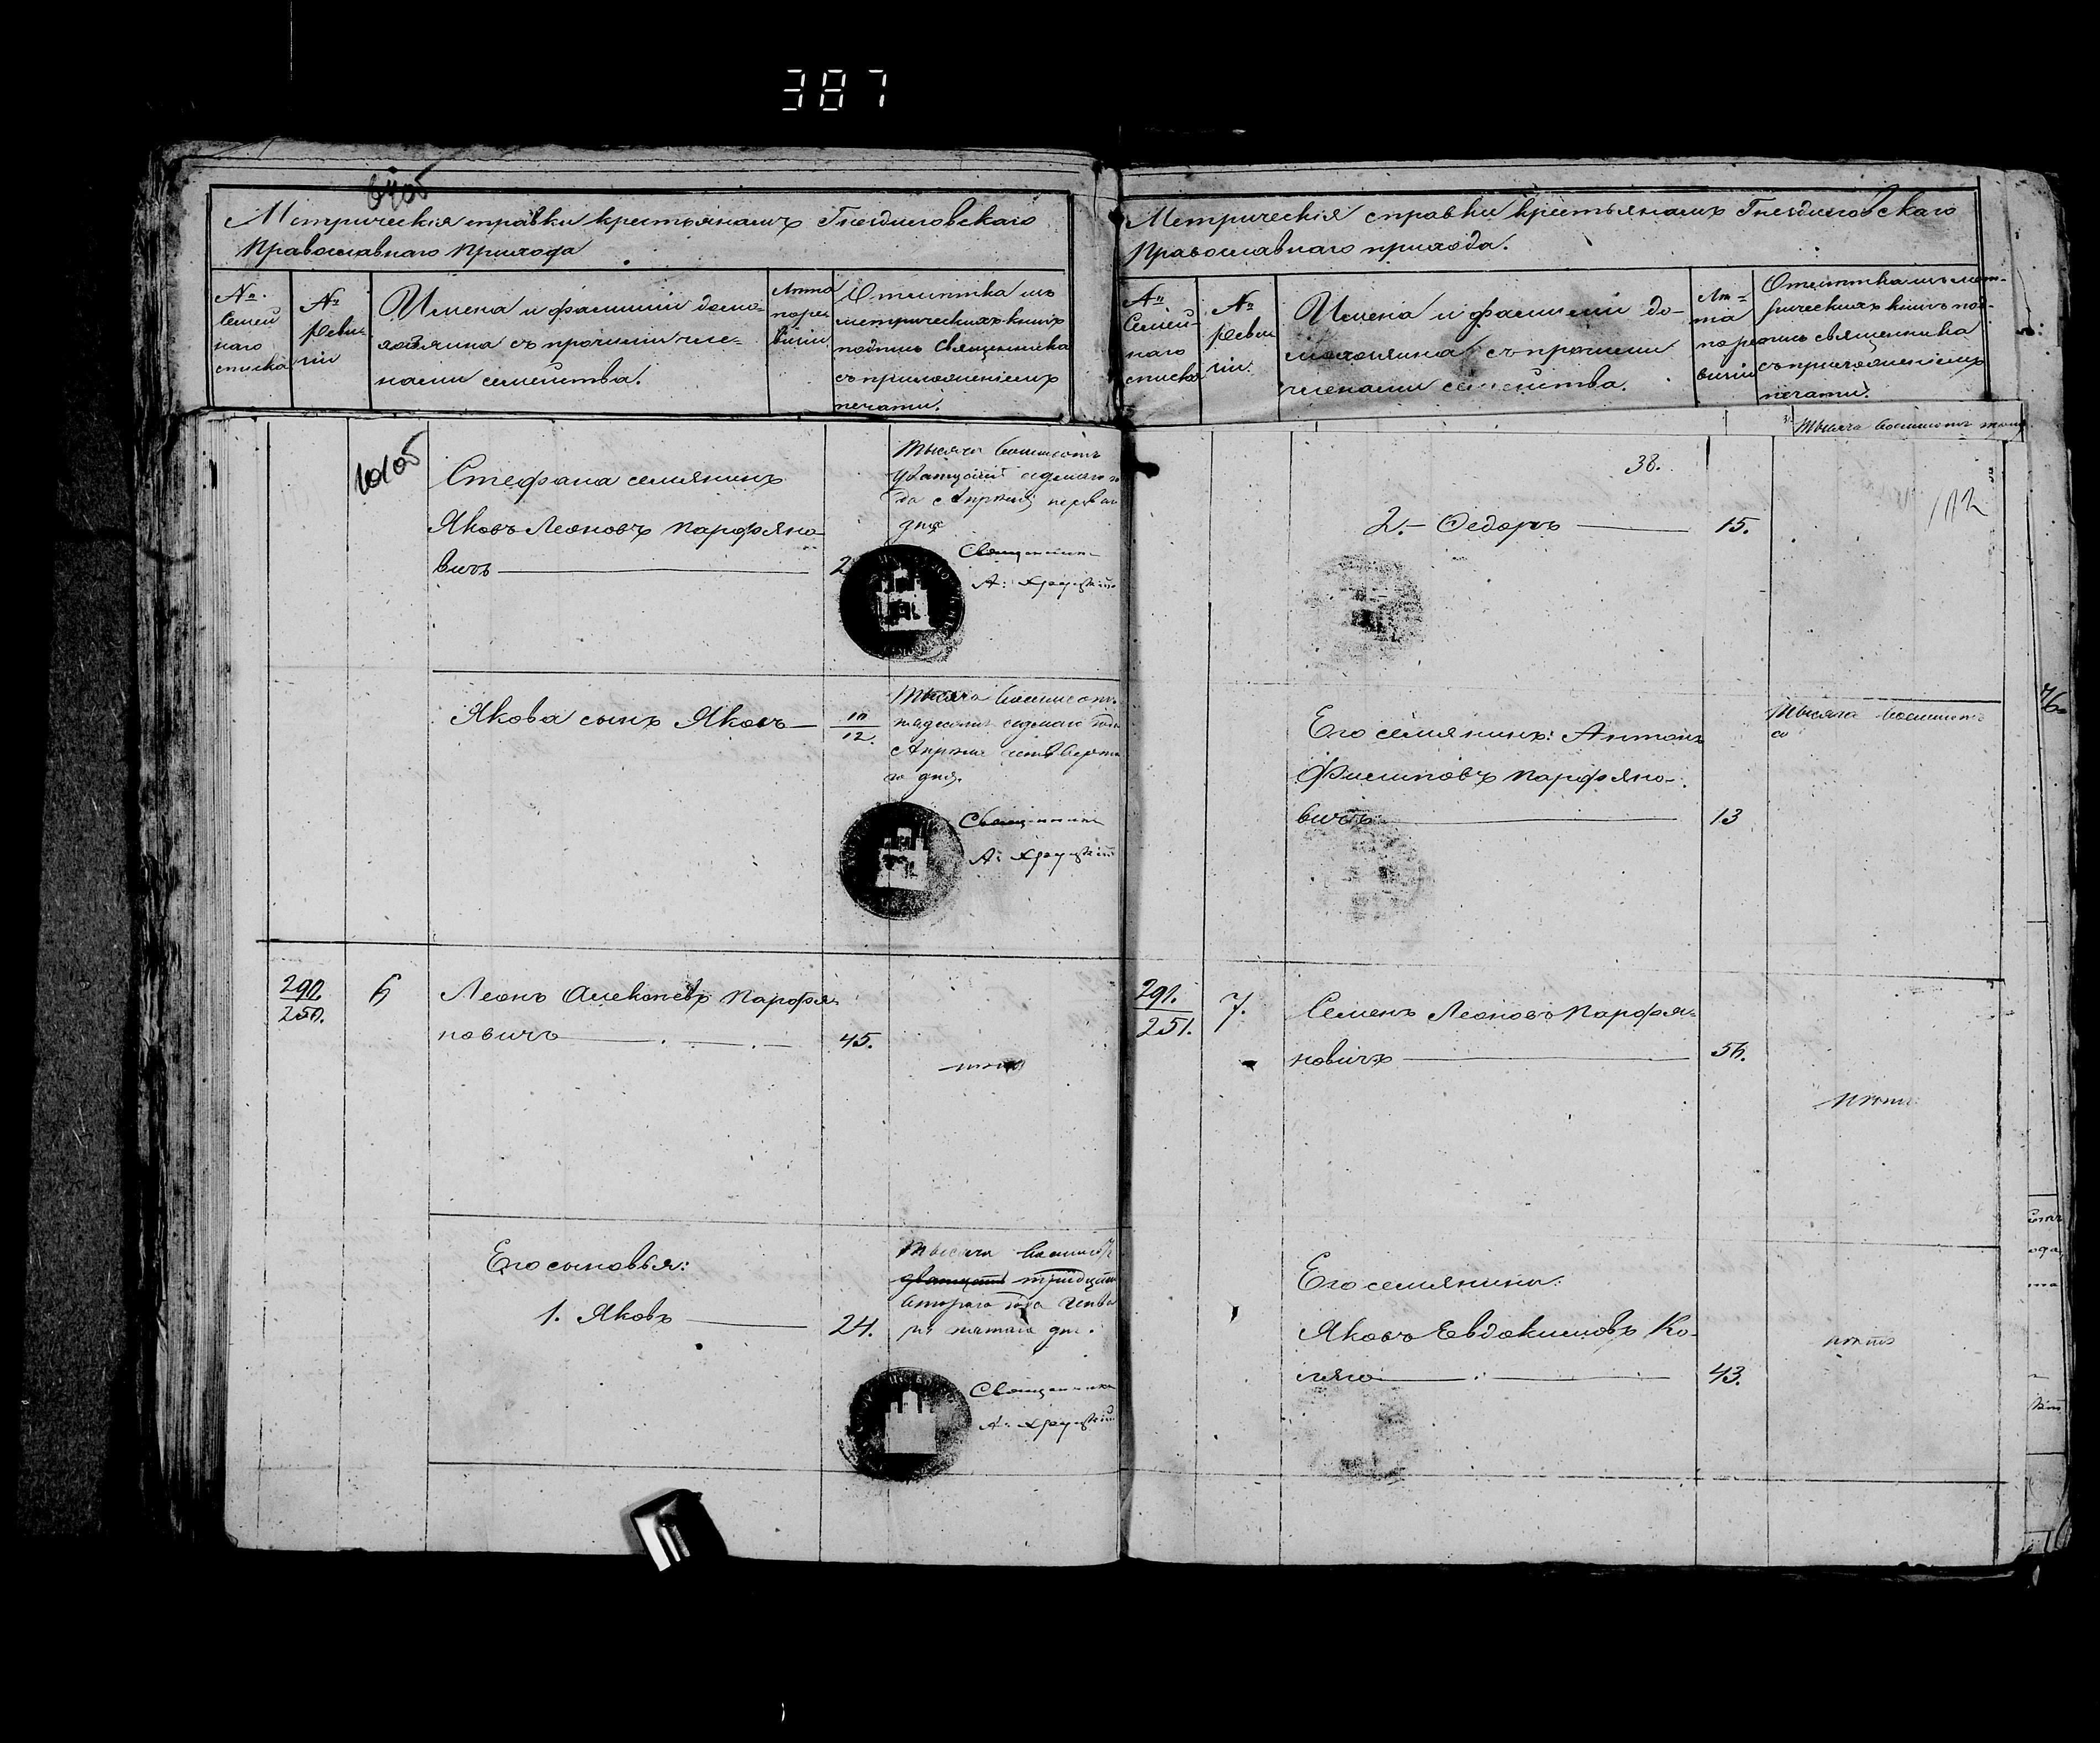 387
64об
Метрическія справки крестьянамъ Гнездиловскаго
Православнаго Прихода
№
Семей
наго
списка
№
Реви-
зіи
Имена и фамиліи домо-
хозяина съ прочими чле-
нами семейства.
Лета
по реви-
зіи
Отметка изъ
метрическихъ книгъ
подпись священника
съ приложеніемъ
печати.
101об
Стефана семянинъ
Яковъ Леоновъ Парфяно-
вичъ
2
Тысяча восемьсотъ
двадцать седьмаго го
да Апреля перваго
дня
Священникъ
А. Хруцкій
Якова сынъ Яковъ
10/12.
Тысяча восемьсотъ
седьмаго года
Апреля четверта
го дня.
Священникъ
А. Хруцкій
290.
250.
6
Леонъ Алексеевъ Парфя-
новичъ
45.
нетъ
Его сыновья:
1. Яковъ
24.
Тысяча восемьсотъ
двадцать тридцать
втораго года Генва
ря пятаго дня.
Священникъ
А. Хруцкій
Метрическія справки крестьянамъ Гнездиловскаго
Православнаго прихода.
№
Семей-
наго
списка
№
Реви
зіи.
Имена и фамиліи до-
мохозяина съ прочими
членами семейства.
Ле-
та
по ре
визіи
Отметка изъ мет-
рическихъ книгъ под-
пись священника
съ приложеніемъ
печати.
Тысяча восемьсотъ
38.
102
2. Федоръ
15.
Его семянинъ: Антонъ
Филиповъ Парфяно-
вичъ
13
Тысяча восемьсотъ
291.
251.
7.
Семенъ Леоновъ Парфя-
новичъ
56.
нетъ
Его семянинъ:
Яковъ Евдокимовъ Ко-
ляго
43.
нетъ